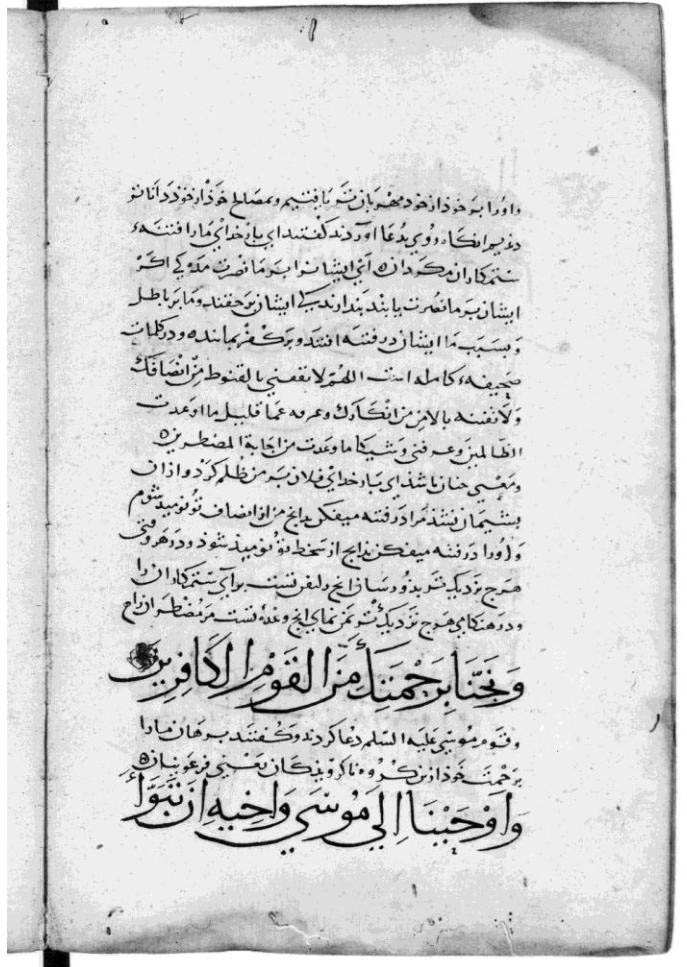 واورا بر خود از خود مهربان تر یافتیم و مصالح خود از خود داناتر
آنکاه روی بدعا اوردند کفتند ای بار خدای مارا فتنهء
ستمکاران مکردان ه ای ایشانرا بر ما نصرت مده کی اکر
ایشان بر ما نصرت یابند بندارند کی ایشان بر حقند و ما بر باطل
و بسبب ما ایشان در فتنه افتند و بر کفر بمانند ه و در کلمات
صحیفهء کامله است اللهم لا تفتنی بالقنوط من انصافک
ولا تفتنه بالامن من انکارک وعرفه عما قلیل ما اوعدت
الظالمین وعرفنی ما وعدت من اجابة المضطرین ه
ومعنی جنان باشد ای بار خدای فلان بر من ظلم کرد و از ان
بشیمان نشد مرا در فتنه میفکن بدانج من از انصاف تو نومید شوم
و اورا در فتنه میفکن بدانج از سخط تو نومید شود و در هر وقتی
هرج نزدیک تر بذو رسان انج تست برای ستمکاران را
و در هنکامی هرج نزدیک تر بمن نمای انج وعدهٔ تست مر مضطران را
وَنَجِّنَا بِرَحْمَتِكَ مِنَ الْقَوْمِ الْكَافِرِينَ
وقوم موسی علیه السلم دعا کردند و کفتند برهان مارا
برحمت خود ازین کروه ناکرویذکان یعنی فرعونیان ه
وَأَوْحَيْنَا إِلَى مُوسَى وَأَخِيهِ أَنْ تَبَوَّآ